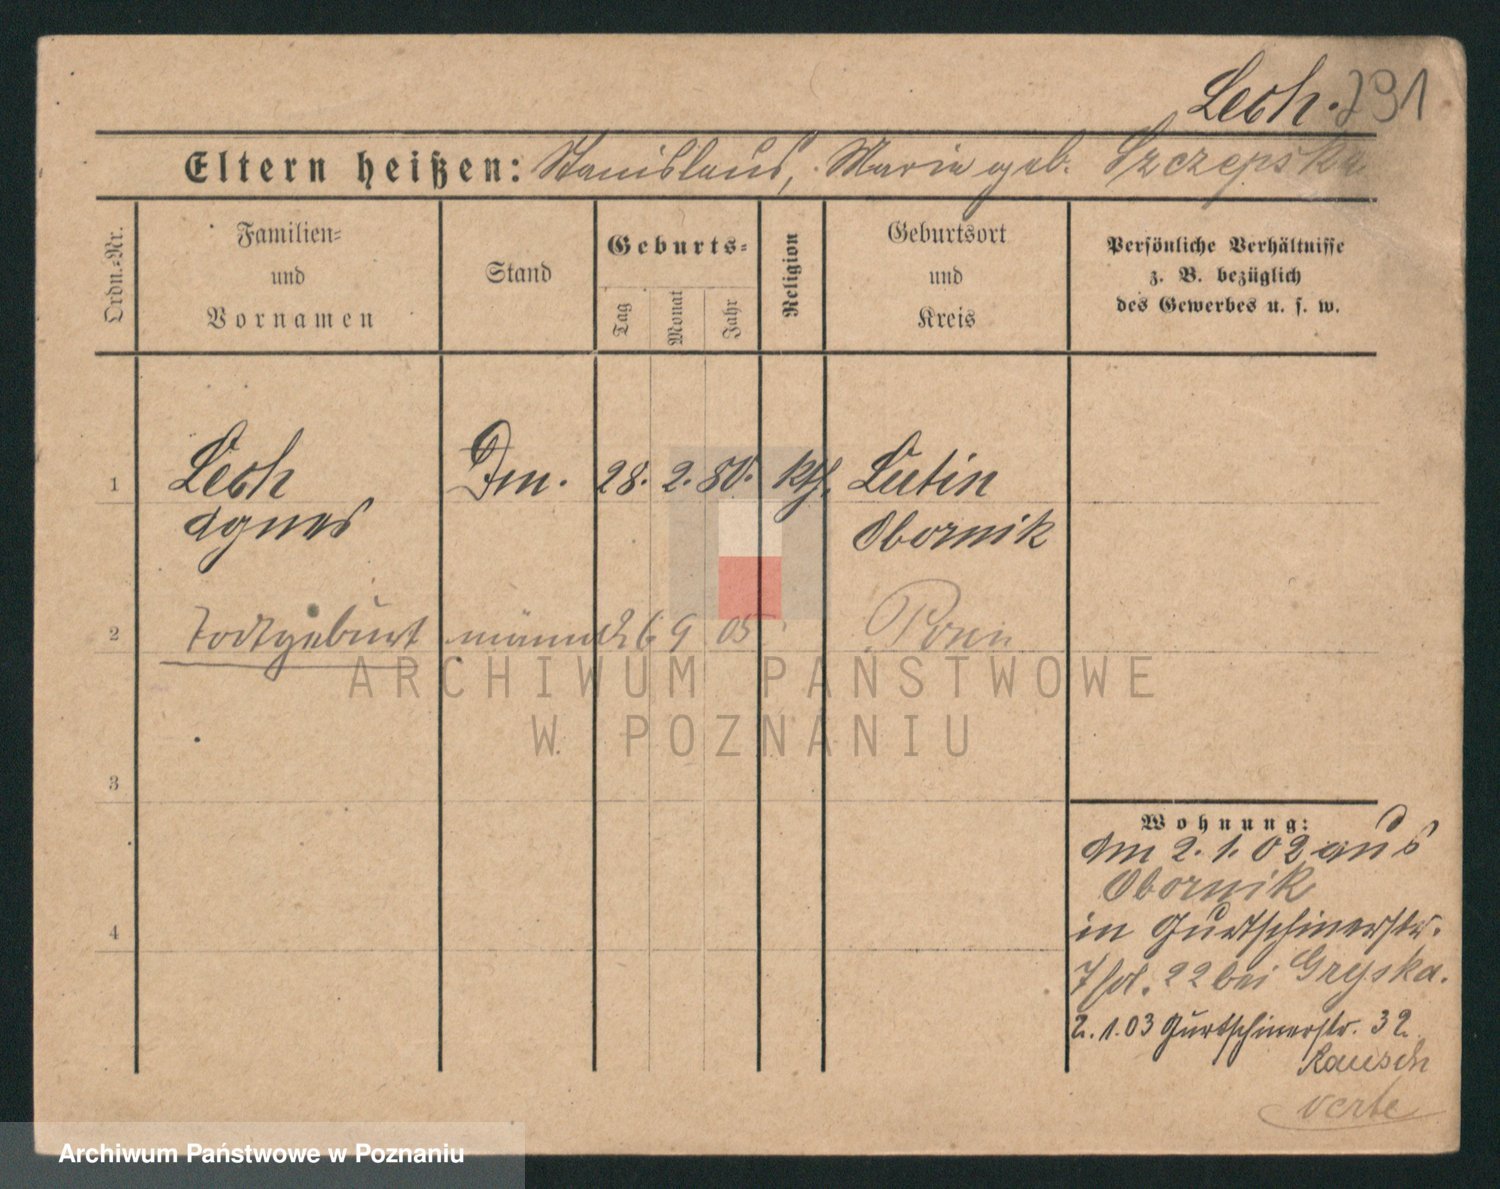 Lech. 291
Eltern heißen: Stanislaus, Marie geb. Szczepska
Ordn.-Nr.
Familien-
und
Vornamen
Stand
Geburts-
Tag
Monat
Jahr
Religion
Geburtsort
und
Kreis
Persönliche Verhältnisse
z. B. bezüglich
des Gewerbes u. s. w.
1 Lech Dm. 28. 2. 80. kth. Lutin
Agnes Obornik
2 Todtgeburt männl 26 9 05 Posen
3
4
Wohnung:
Am 2. 1. 02 aus
Obornik
in Gurtschinerstr.
7 22 bei Gryska.
2. 1. 03 Gurtschinerstr. 32
Rausch
verte
ARCHIWUM PAŃSTWOWE
W POZNANIU
Archiwum Państwowe w Poznaniu